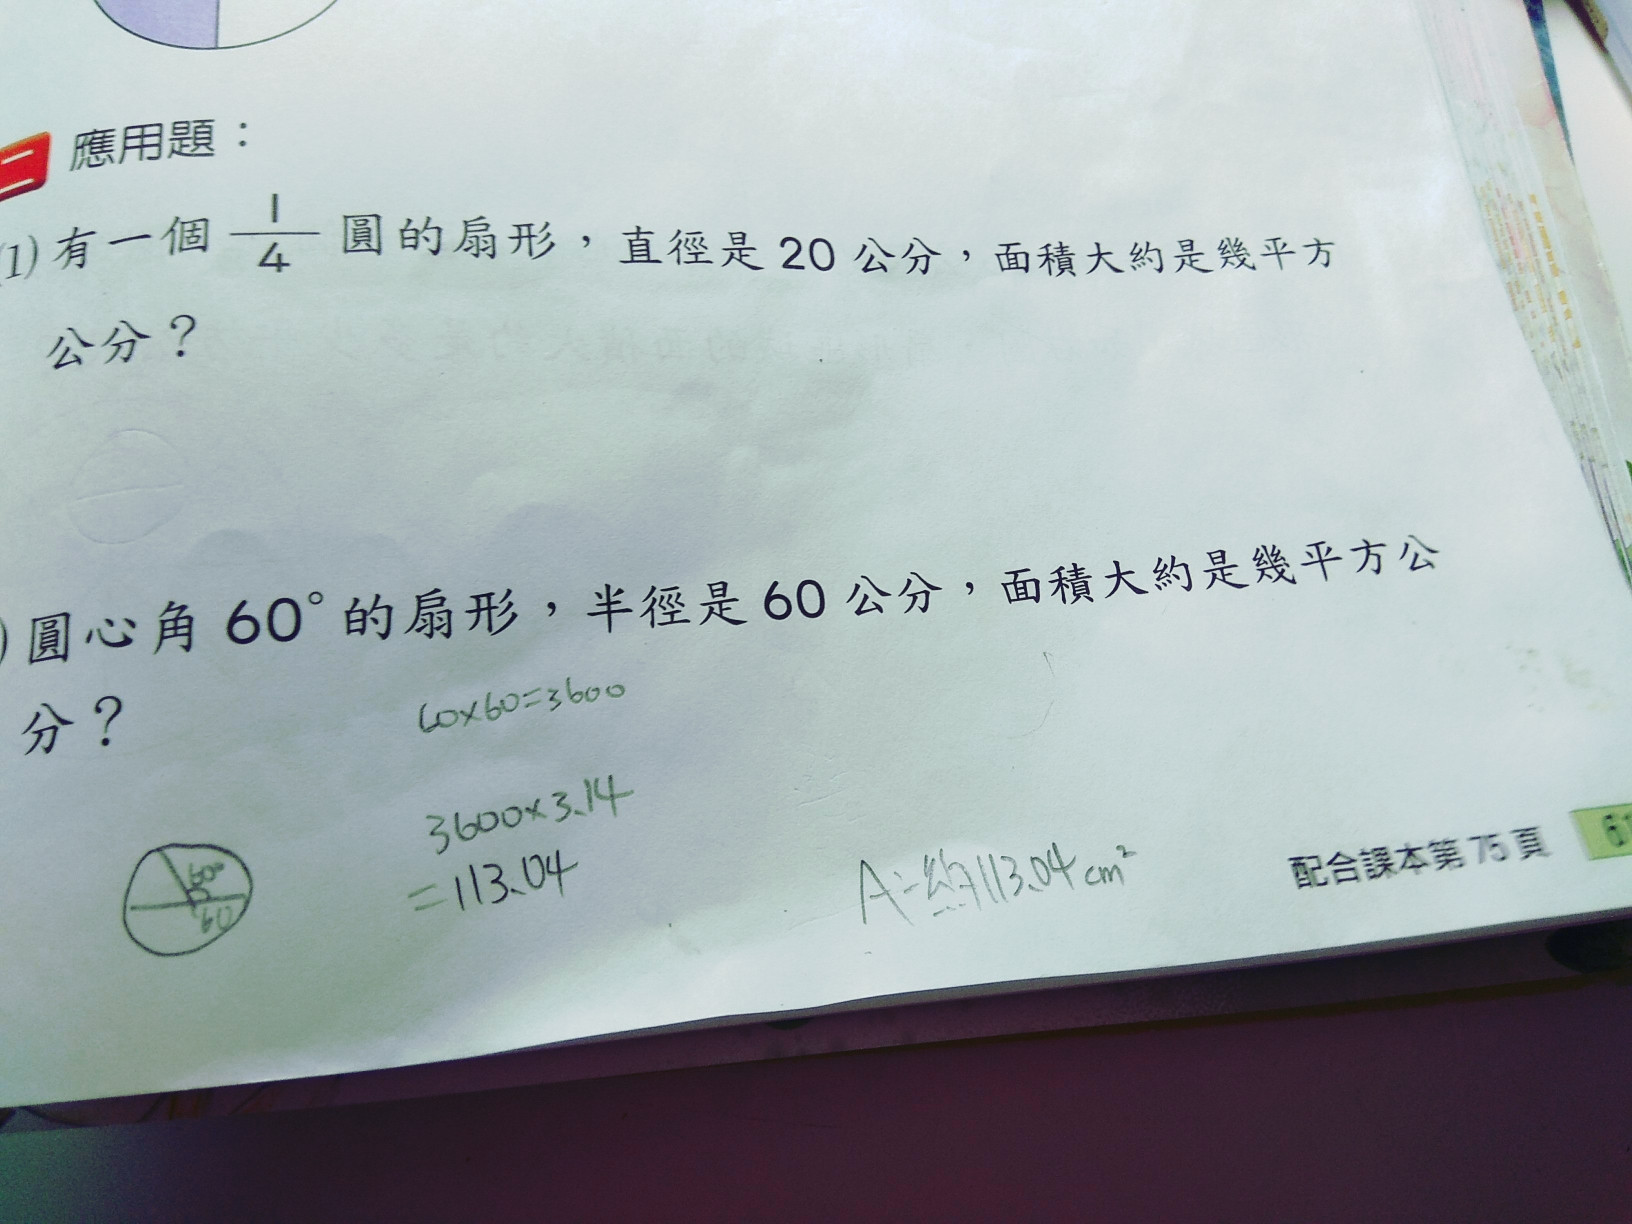 二 應用題：
(1) 有一個 1/4 圓的扇形，直徑是 20 公分，面積大約是幾平方
公分？
) 圓心角 60° 的扇形，半徑是 60 公分，面積大約是幾平方公
分？
60×60=3600
3600×3.14
=113.04
60°
60
A:約113.04 cm²
配合課本第 75 頁